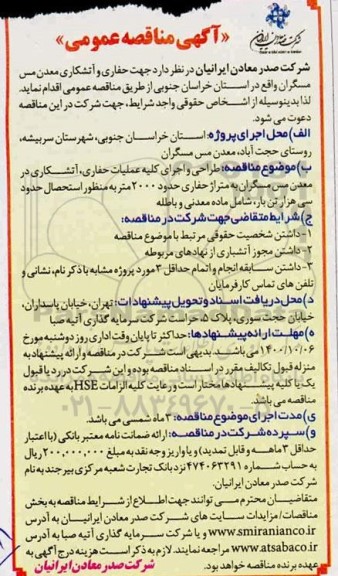 «آگهی مناقصه عمومی»
شرکت صدر معادن ایرانیان در نظر دارد جهت حفاری و آتشکاری معدن مس
مسگران واقع در استان خراسان جنوبی از طریق مناقصه عمومی اقدام نماید.
لذا بدینوسیله از اشخاص حقوقی واجد شرایط، جهت شرکت در این مناقصه
دعوت می شود.
الف) محل اجرای پروژه: استان خراسان جنوبی، شهرستان سربیشه،
روستای حجت آباد، معدن مس مسگران
ب) موضوع مناقصه: طراحی و اجرای کلیه عملیات حفاری، آتشکاری در
معدن مس مسگران به متراژ حفاری حدود ۲۰۰۰ متر به منظور استحصال حدود
سی هزار تن بار، شامل ماده معدنی و باطله
ج) شرایط متقاضی جهت شرکت در مناقصه:
۱- داشتن شخصیت حقوقی مرتبط با موضوع مناقصه
۲- داشتن مجوز آتشباری از نهادهای مربوطه
۳- داشتن سابقه انجام و اتمام حداقل ۳ مورد پروژه مشابه با ذکر نام، نشانی و
تلفن های تماس کارفرمایان
د) محل دریافت اسناد و تحویل پیشنهادات: تهران، خیابان پاسداران،
خیابان حجت سوری، پلاک ۵، حراست شرکت سرمایه گذاری آتیه صبا
ه) مهلت ارائه پیشنهادها: حداکثر تا پایان وقت اداری روز دوشنبه مورخ
۱۴۰۰/۱۰/۰۶ می باشید. بدیهی است شرکت در مناقصه و ارائه پیشنهاد به
منزله قبول تکالیف مقرر در اسناد مناقصه بوده و این شرکت در رد یا قبول
یک یا کلیه پیشنهادها مختار است و رعایت کلیه الزامات HSE به عهده برنده
مناقصه می باشد.
ی) مدت اجرای موضوع مناقصه: ۳ ماه شمسی می باشد.
و) سپرده شرکت در مناقصه: ارائه ضمانت نامه معتبر بانکی (با اعتبار
حداقل ۳ ماهه و قابل تمدید) و یا واریز وجه نقد به مبلغ ۲۰۰,۰۰۰,۰۰۰ ریال
به حساب شماره ۴۷۴۰۶۳۲۹۱ نزد بانک تجارت شعبه مرکزی بیرجند به نام
شرکت صدر معادن ایرانیان.
متقاضیان محترم می توانند جهت اطلاع از شرایط مناقصه به بخش
مناقصات/ مزایدات سایت های شرکت صدر معادن ایرانیان به آدرس
www.smiranianco.ir و یا شرکت سرمایه گذاری آتیه صبا به آدرس
www.atsabaco.ir مراجعه نمایند. لازم به ذکر است هزینه درج آگهی به
عهده برنده مناقصه خواهد بود.
شرکت صدر معادن ایرانیان